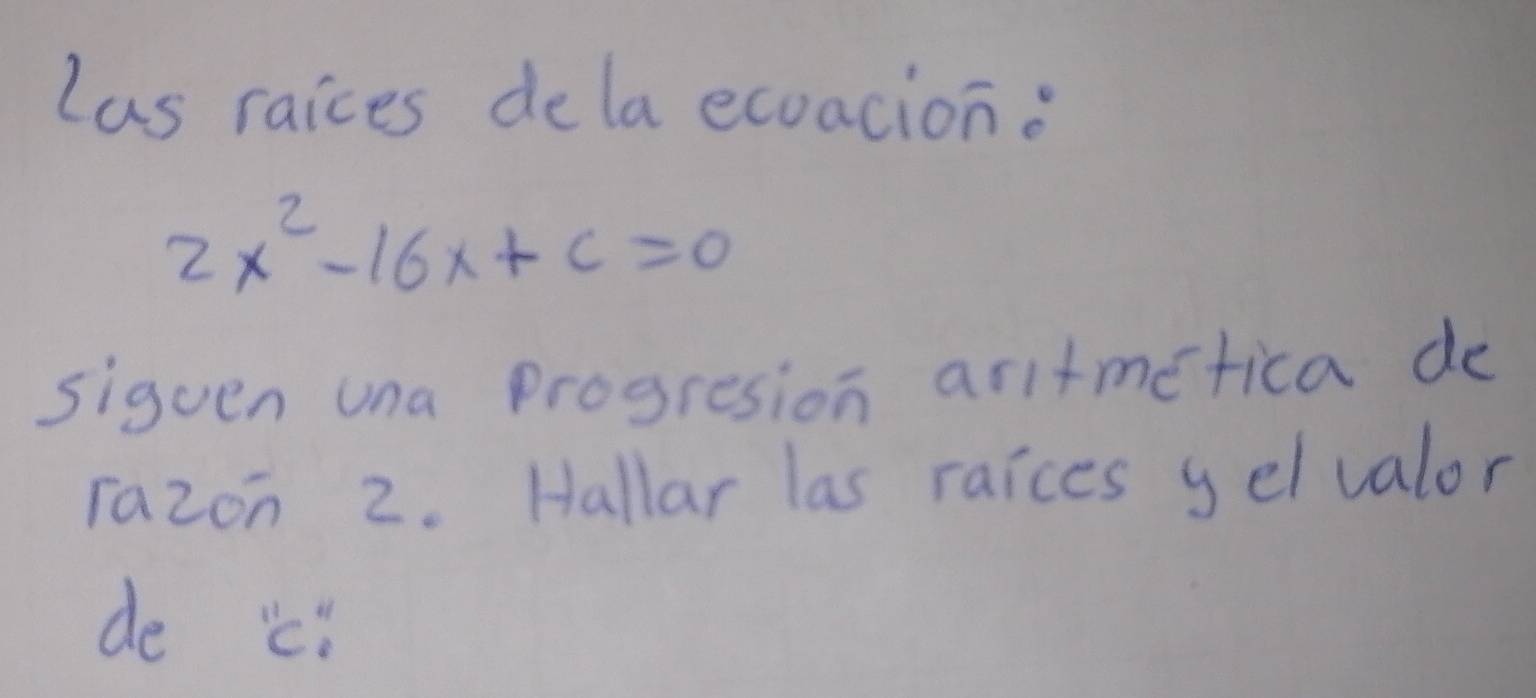 Las raíces de la ecuación:
2x² - 16x + c = 0
siguen una progresión aritmética de
razón 2. Hallar las raíces y el valor
de "c".